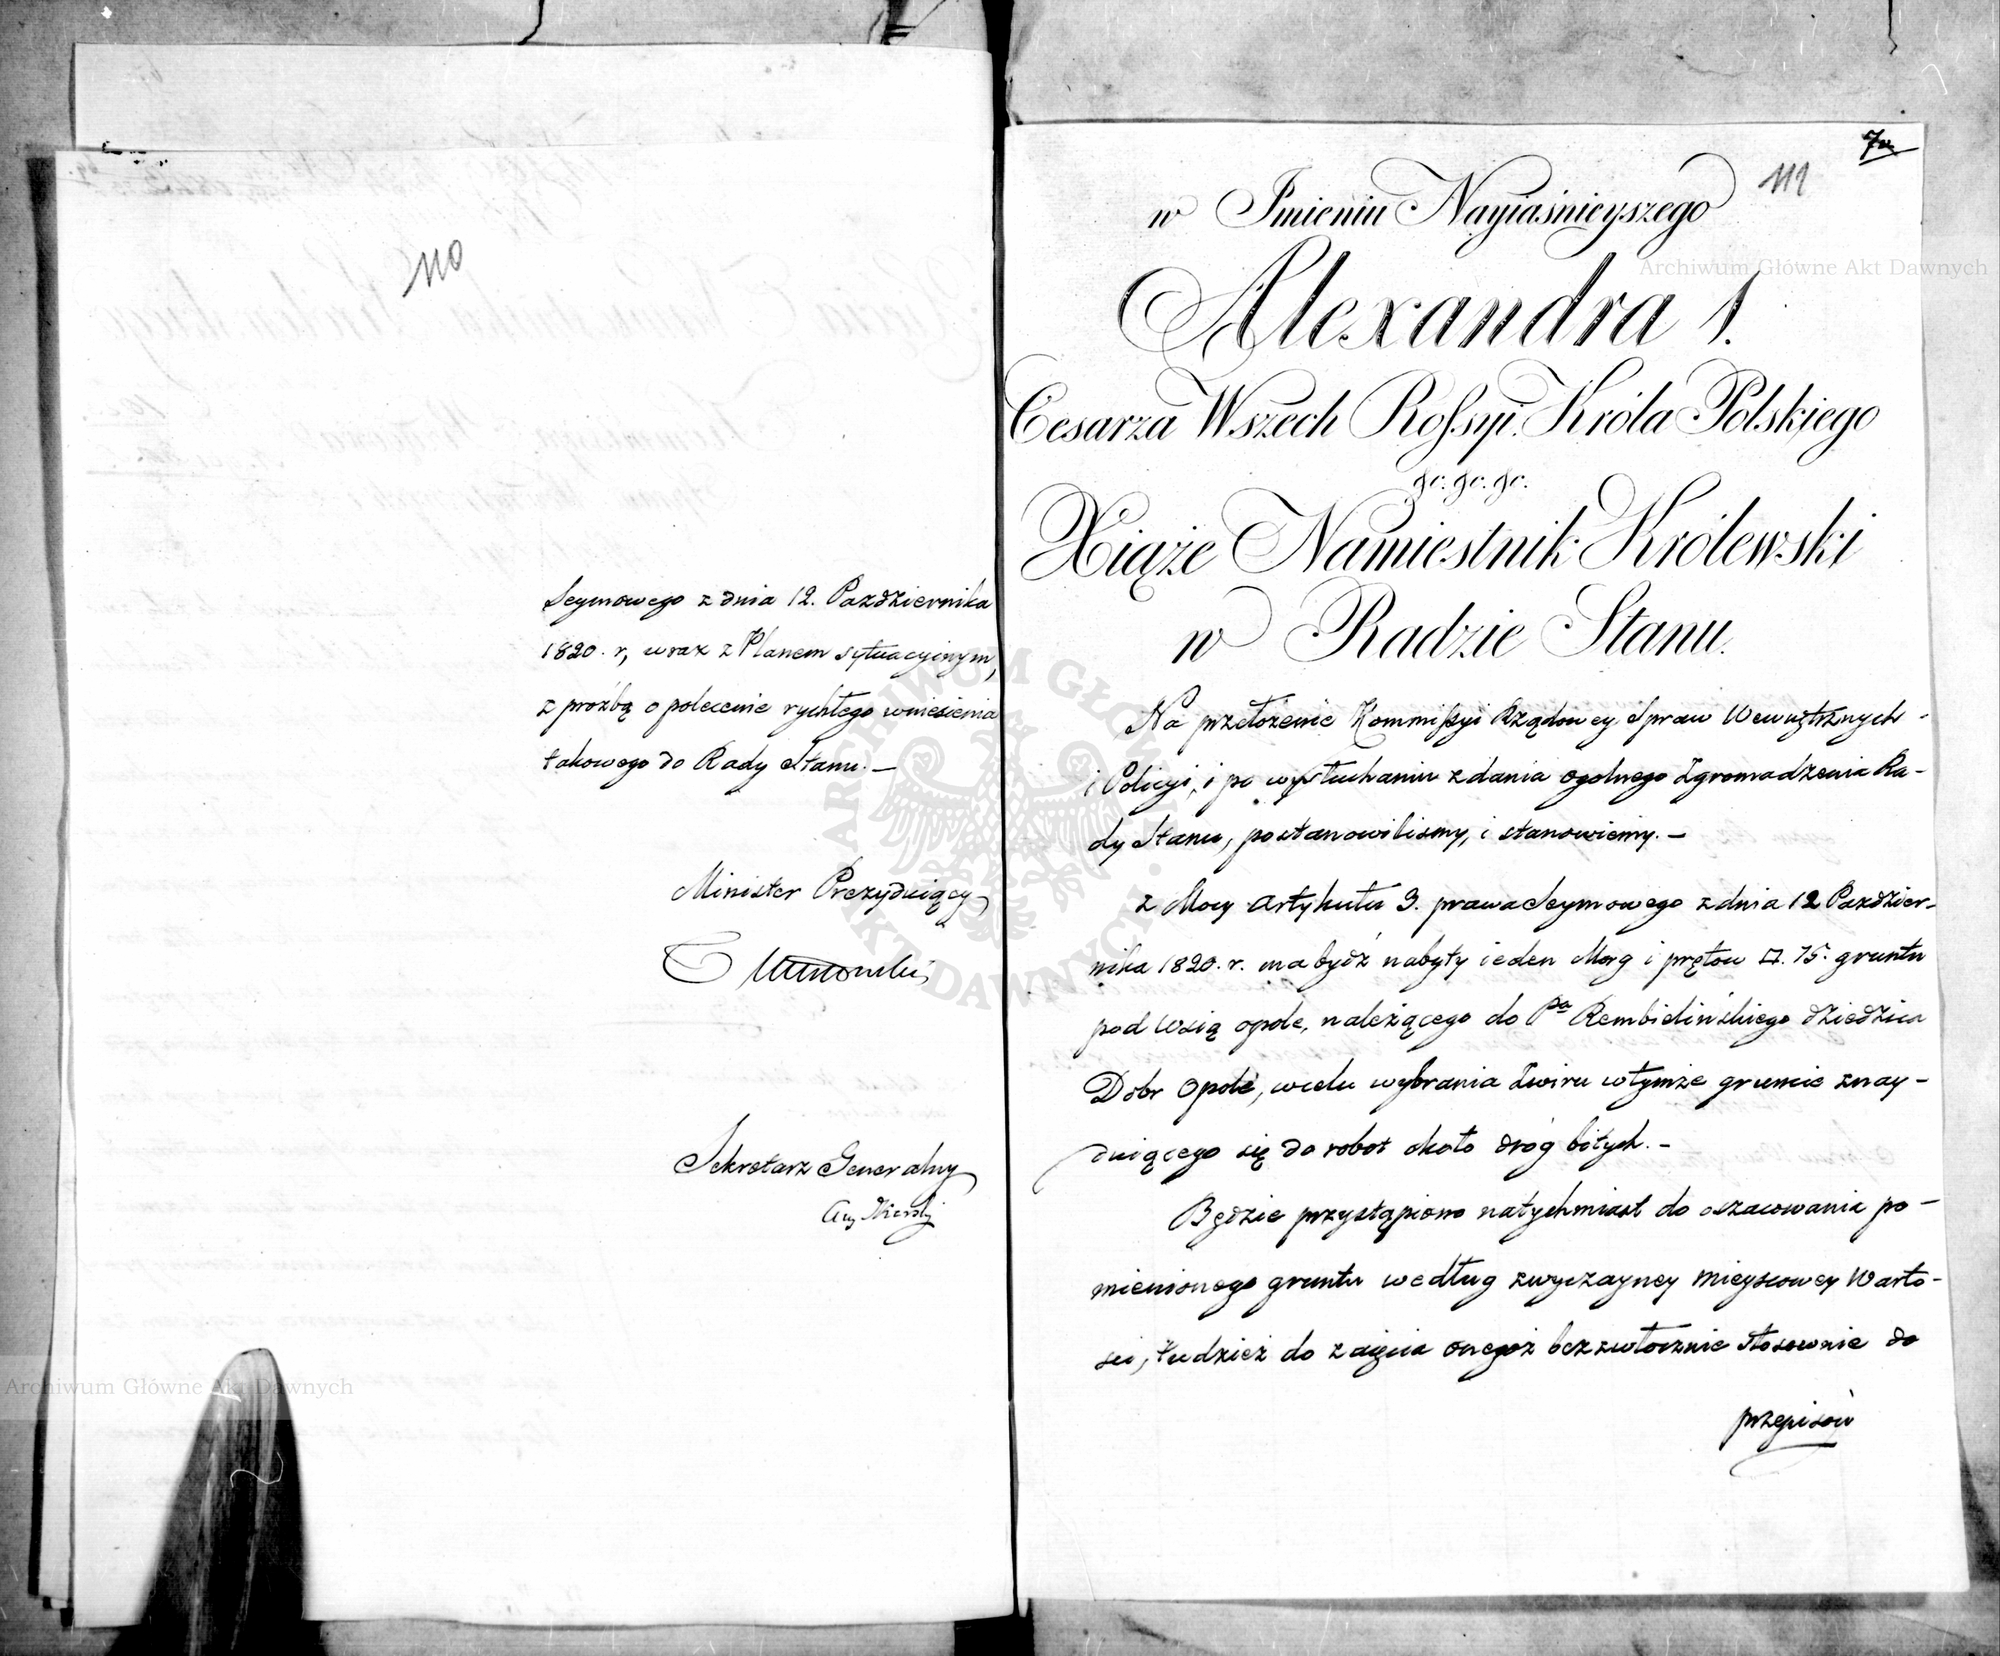 110
Seymowego z dnia 12. Pazdziernika
1820. r, wraz z Planem sytuacyinym,
z prozbą o polecenie rychłego wniesienia
takowego do Rady Stanu. –
Minister Prezyduiący
Sekretarz Generalny
7a
111
w Imieniu Nayiaśnieyszego
Alexandra 1.
Cesarza Wszech Rossyi. Króla Polskiego
&c. &c. &c.
Xiąże Namiestnik Królewski
w Radzie Stanu.
Na przełożenie Kommissyi Rządowey Spraw Wewnętrznych
i Policyi, i po wysłuchaniu zdania ogolnego Zgromadzenia Ra-
dy Stanu, postanowilismy, i stanowiemy. –
z Mocy Artykułu 3. prawa Seymowego z dnia 12 Pazdzier-
nika 1820. r. ma bydź nabyty ieden Morg i prętow □. 75. gruntu
pod Wsią opole, należącego do Pa Rembielińskiego dziedzica
Dobr Opole, wcelu wybrania Zwiru wtymże gruncie znay-
duiącego się do robot około dróg bitych. –
Będzie przystąpiono natychmiast do oszacowania po-
mienionego gruntu według zwyczayney mieyscowey Warto-
sci, tudzież do zaięcia onegoż bezzwłocznie stosownie do
przepisów
Archiwum Główne Akt Dawnych
Archiwum Główne Akt Dawnych
ARCHIWUM GŁÓWNE AKT DAWNYCH